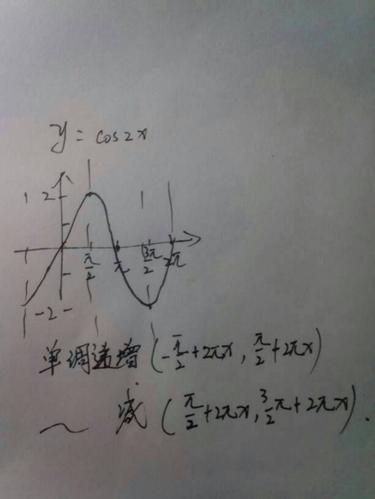 y = cos2x
2
π/2 π 3π/2 2π
-2
单调递增 (-π/2+2πx, π/2+2πx)
～ 减 (π/2+2πx, 3/2π+2πx).